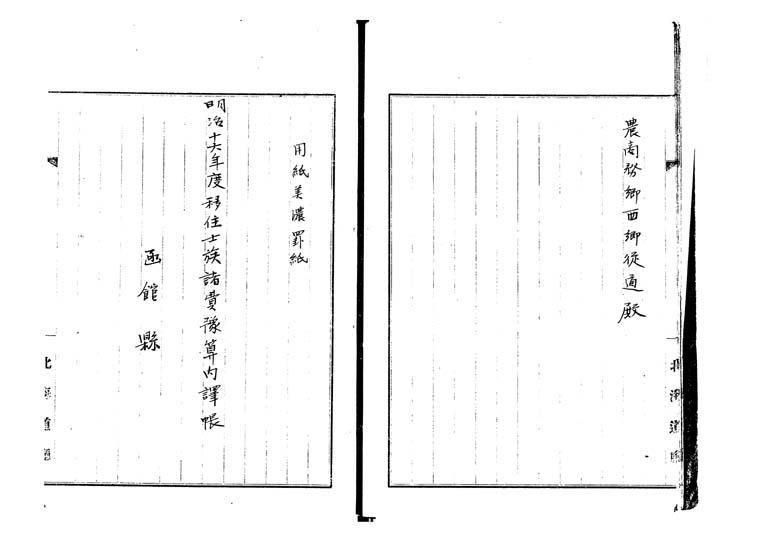 農商務卿西郷従道殿
北海道廳
用紙美濃罫紙
明治十六年度移住士族諸費豫算内譯帳
函館縣
北海道廳